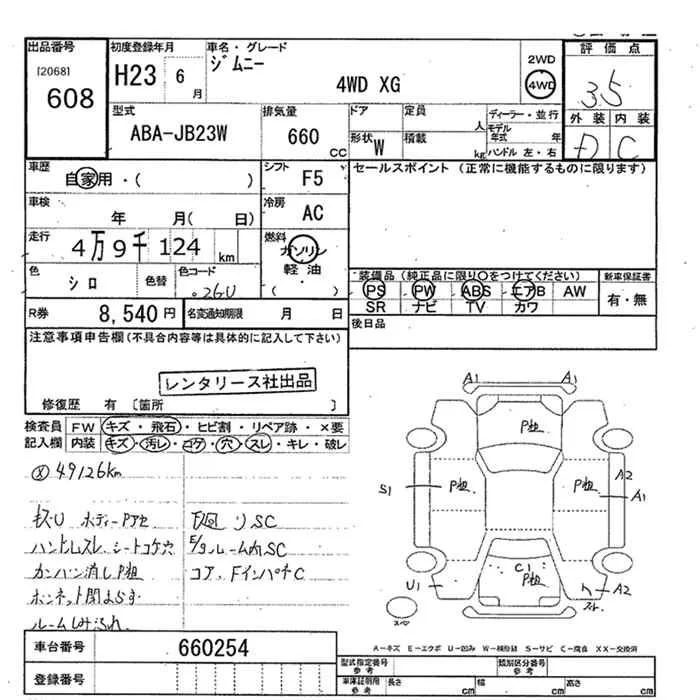 出品番号
[2068]
608
初度登録年月
H23 6月
車名・グレード
ジムニー
4WD XG
2WD
4WD
評価点
3.5
外装 内装
D C
型式
ABA-JB23W
排気量
660
CC
ドア
定員
人
形状
W
積載
kg
ディーラー・並行
モデル年式 年
ハンドル 左・右
車歴
自家用・( )
シフト
F5
セールスポイント (正常に機能するものに限ります)
車検
年 月( 日)
冷房
AC
走行
4万9千124 km
燃料
ガソリン
軽油
( )
色
シロ
色替
色コード
26U
装備品(純正品に限り○をつけてください)
PS PW ABS エアB AW
SR ナビ TV カワ
新車保証書
有・無
R券
8,540円
名変通知期限 月 日
後日品
注意事項申告欄(不具合内容等は具体的に記入して下さい)
レンタリース社出品
修復歴 有 〔箇所 〕
検査員
記入欄
FW キズ・飛石・ヒビ割・リペア跡・×要
内装 キズ・汚レ・コゲ・穴・スレ・キレ・破レ
49126km
キズU ボディーPアセ
下廻リSC
ハンドルスレ、シートコゲ穴
E/gルーム内SC
カンバン消しP粗
コア、FインパネC
ボンネット閉まらず
ルームしみ汚れ
A1 A1
P粗
S1 P粗 P粗 A2
A1
C1
P粗
U1 A2
スペア
A-キズ E-エクボ U-凹み W-補修跡 S-サビ C-腐食 XX-交換済
車台番号
660254
登録番号
型式指定番号
参考
類別区分番号
参考
車庫証明用
参考
長さ cm 幅 cm 高さ cm